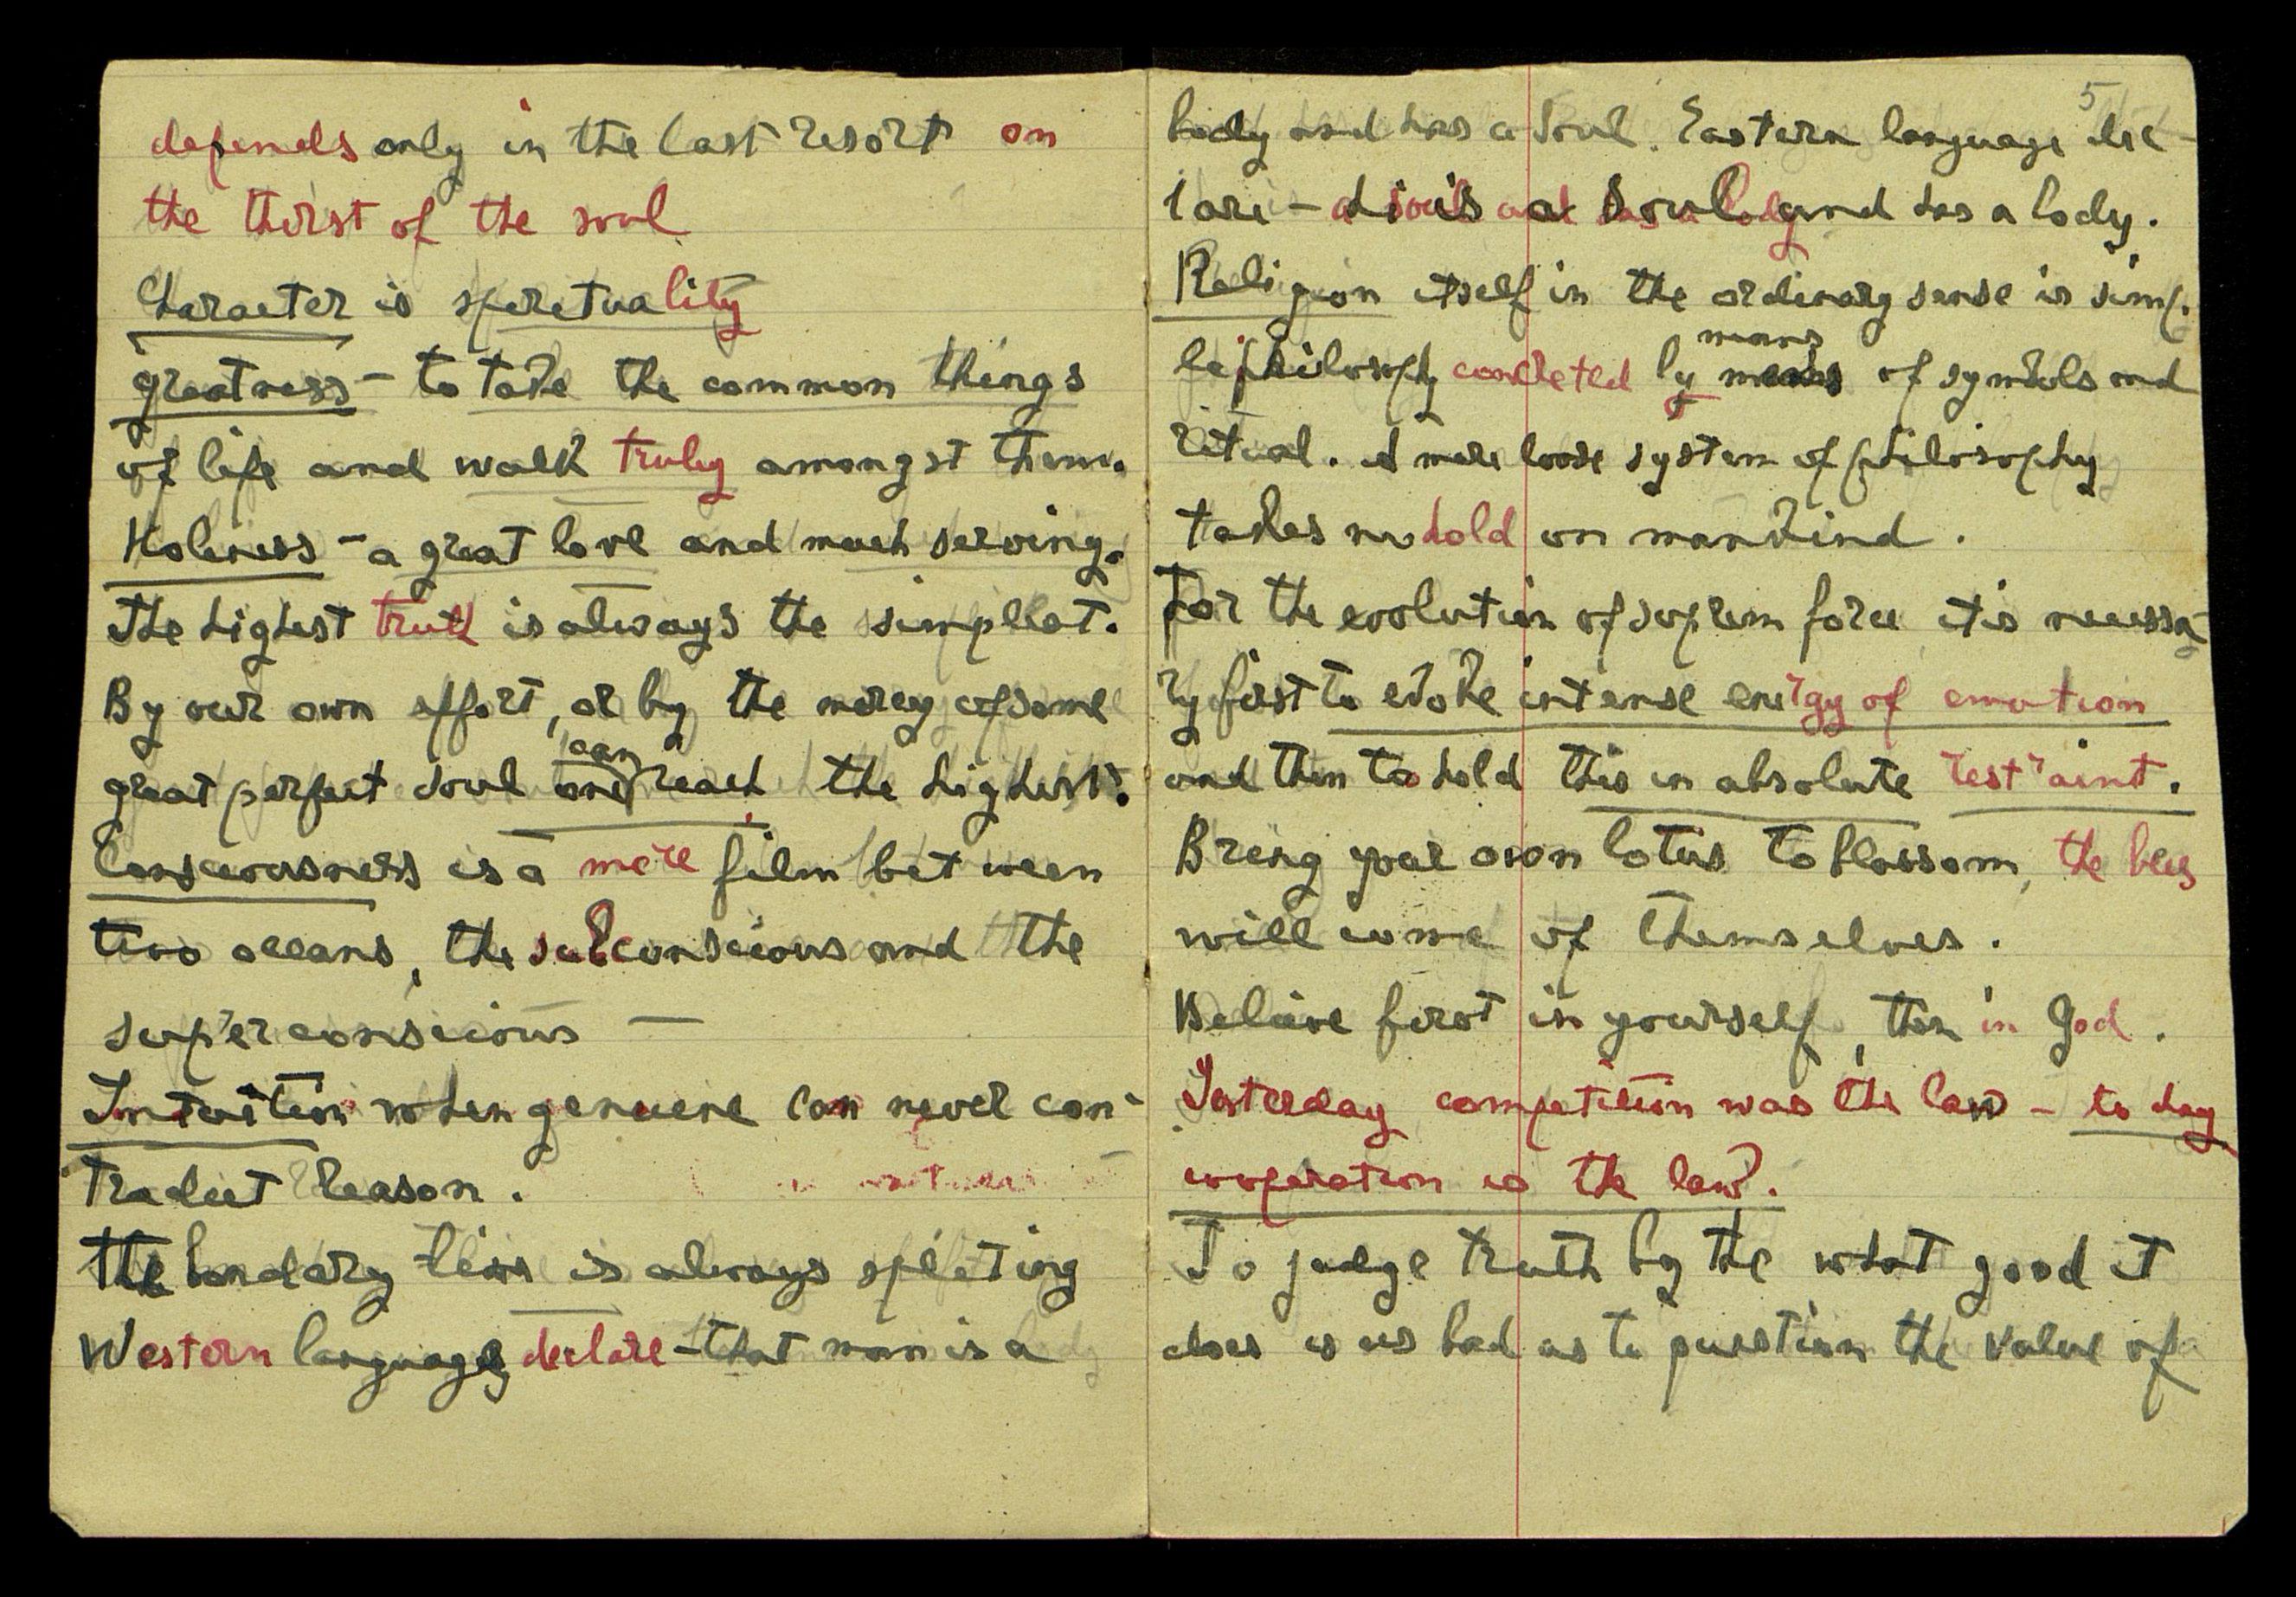 depends only in the last resort on
the thirst of the soul
Character is speretuality
greatness - to take the common things
of life and walk truly amongst them.
Holeness - a great love and much serving.
The highest truth is always the simplest.
By our own effort, or by the mercy of some
can
great perfect soul one reach the highest.
Consciousness is a mere film between
two oceans, the subconscious and the
superconscious —
Intuition when genuene can never con-
tradict reason.
The bondary line is always spleting
Western languages declare - that man is a
5
body and has a soul. Eastern language dec-
lare - is a Soul and has a body.
Religion itself in the ordinary sense is simp-
means
le philosophy concreted by means of symbols and
ritual. A mere loose system of philosophy
takes no hold on mankind.
For the evolution of suprem force it is necessa-
ry first to evoke intense energy of emotion
and then to hold this in absolute restraint.
Bring your own lotus to blossom, the bees
will come of themselves.
Believe first in yourself, then in God.
Yesterday competition was the law - to day
cooperation is the law.
To judge truth by the what good it
does is as bad as to question the value of